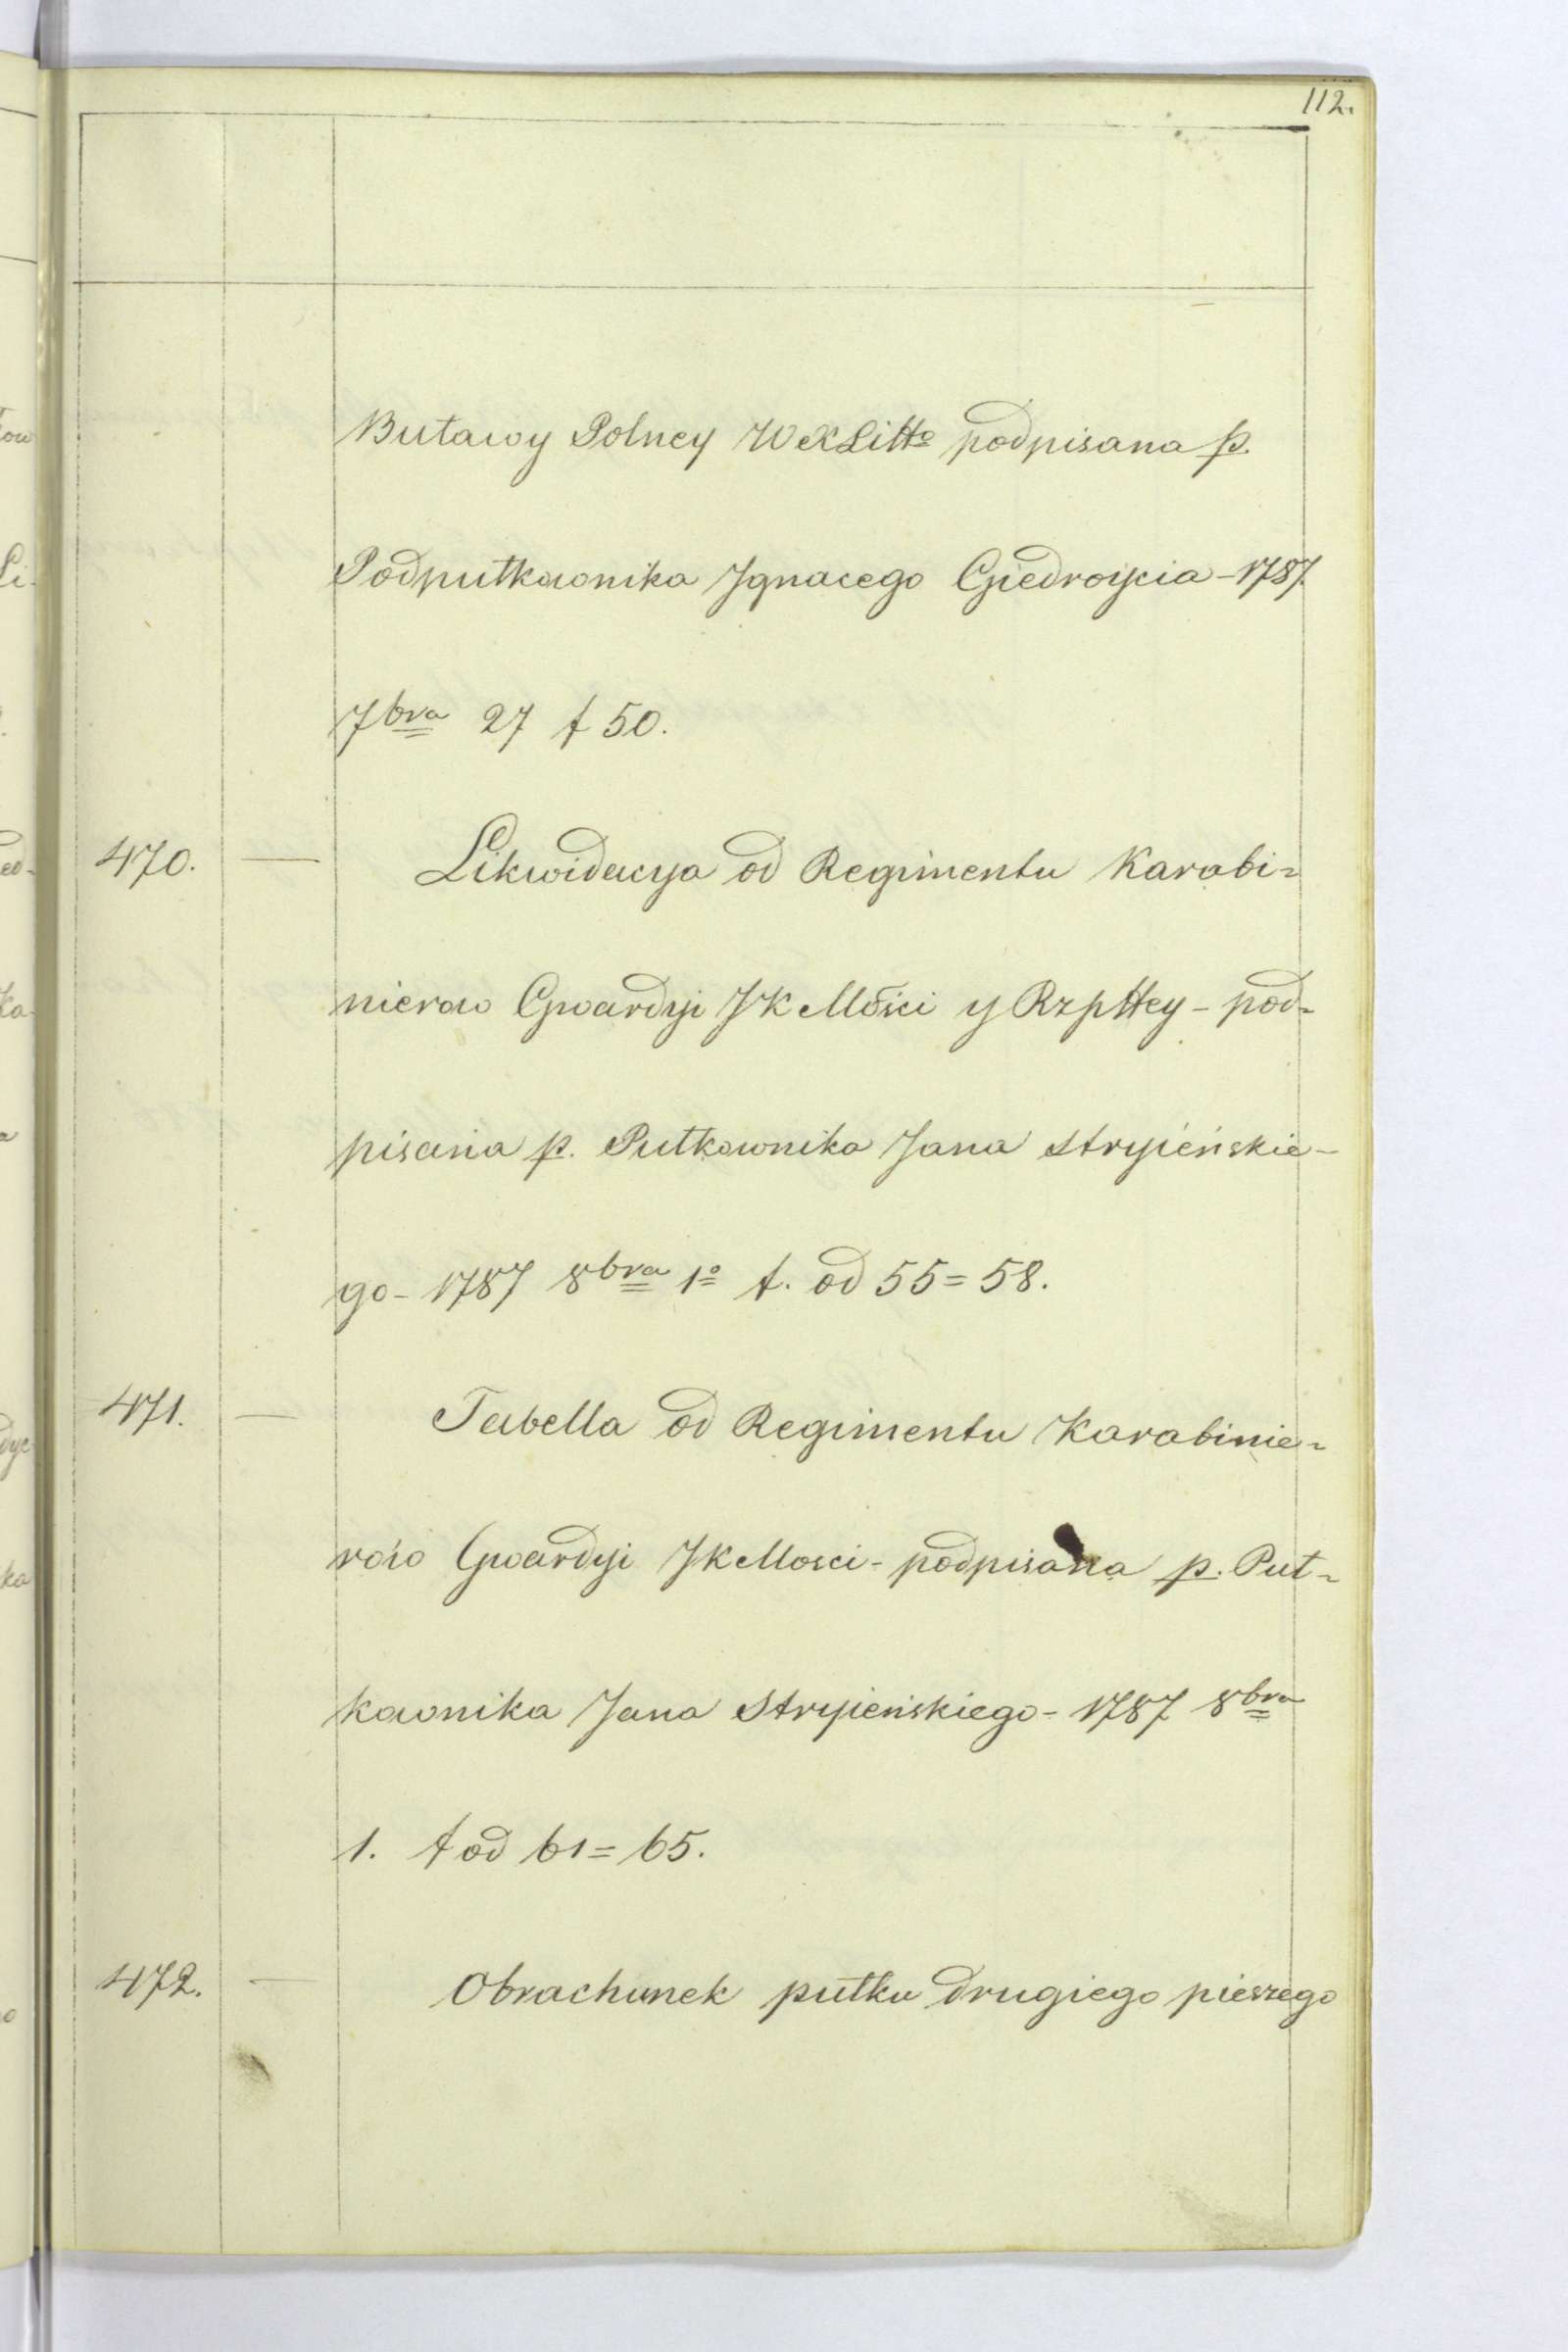 112.
Buławy Polney W X Litto podpisana p.
Podpułkownika Jgnacego Giedroycia - 1787.
7bra 27 f 50.
470. — Likwidacya od Regimentu Karabi=
nierow Gwardyi JK Mości y RzpHtey - pod=
pisana p. Pułkownika Jana Stryieńskie-
go - 1787 8bra 1o f. od 55 = 58.
471. — Tabella od Regimentu Karabinie=
rów Gwardyi JK Mosci - podpisana p. Puł=
kownika Jana Stryieńskiego - 1787 8bra
1. f od 61 = 65.
472. — Obrachunek pułku drugiego pieszego